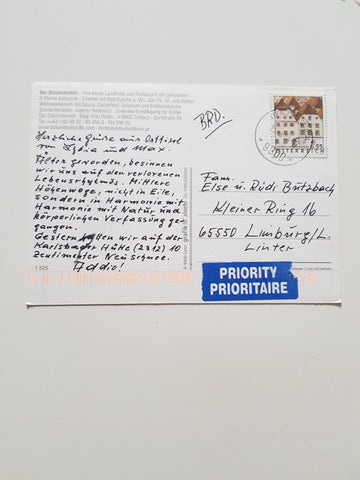 Der Dolomitenhof - Das kleine Landhotel und Restaurant der gehobenen
3-Sterne Kategorie - Zimmer mit Bad/Dusche u. WC, Sat-TV, Tel. und Balkon
Wellnessbereich mit Sauna, Dampfbad, Solarium und Erlebnisdusche,
Sonnenterrasse - eigener Reitstall - Greenfee-Ermäßigung für Golfer
Der Dolomitenhof - Mag. Fritz Reiter - A-9900 Tristach - Dorfstraße 34
Herzliche Grüße aus Osttirol
von Lydia und Max.
Älter geworden, besinnen
wir uns auf den verlorenen
Lebensrhythmus. Mittlere
Höhenwege, nicht in Eile,
sondern in Harmonie mit
Harmonie mit Natur und
körperlichen Verfassung ge-
gangen.
Gestern wir auf der
Karlsbader Hütte (2312) 10
Zentimeter Neuschnee.
Addio!
1.525
BRD.
ÖSTERREICH
Fam.
Else u. Rüdi Butzbach
Kleiner Ring 16
65550 Limburg/L.
Linter
PRIORITY
PRIORITAIRE